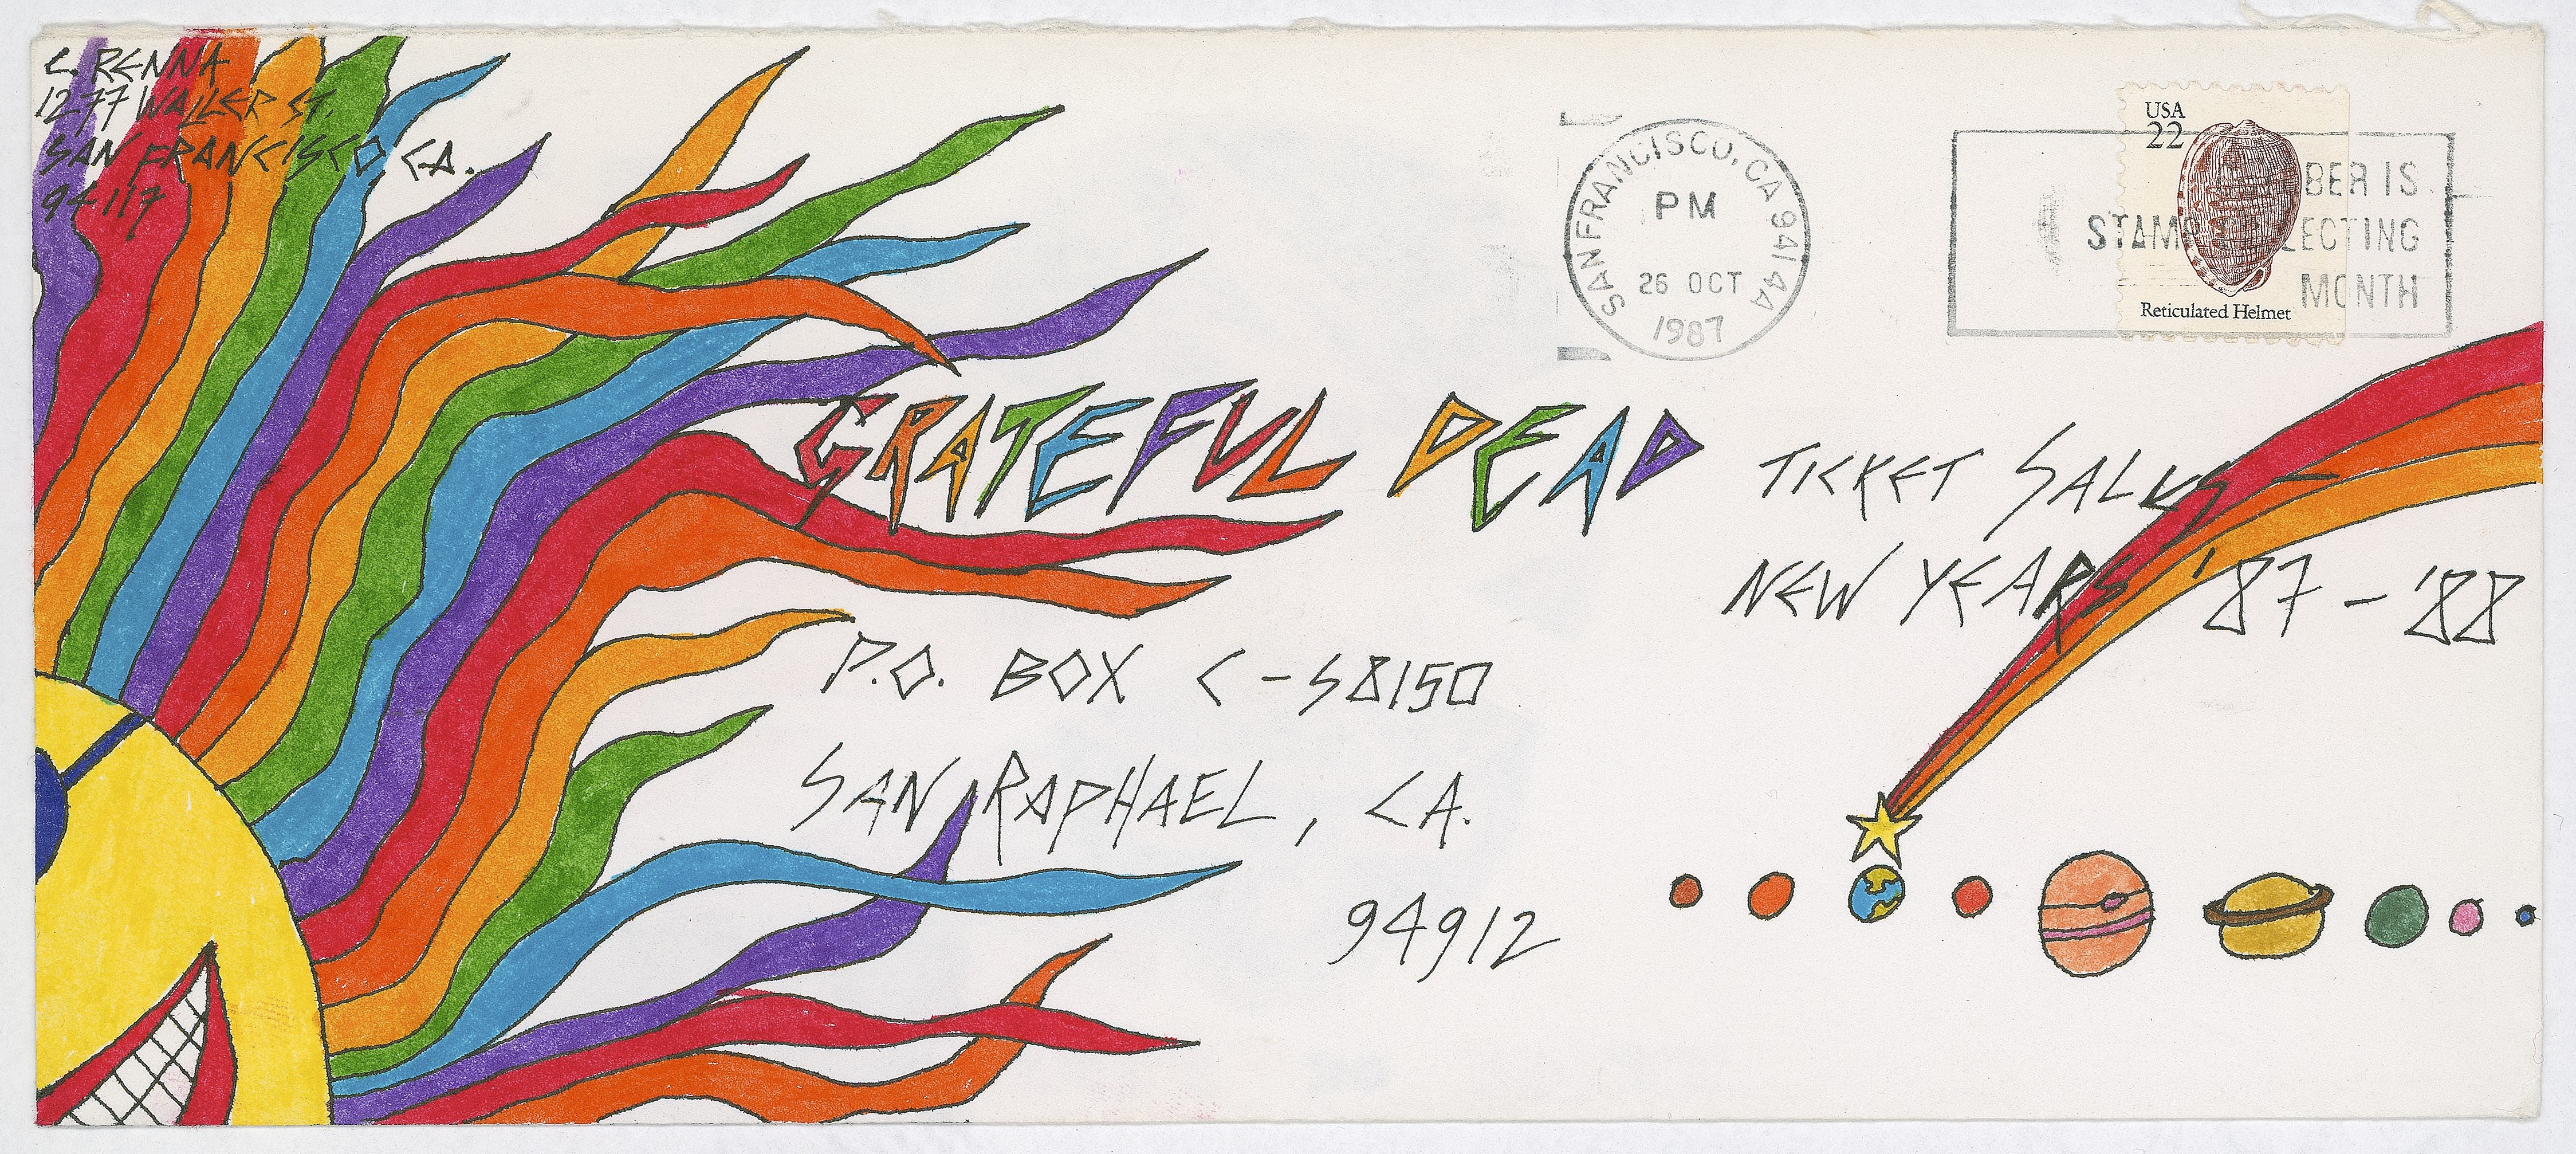 C. RENNA
1277 WALLER ST.
SAN FRANCISCO CA.
94117
SAN FRANCISCO, CA 941 4A
PM
26 OCT
1987
USA
22
Reticulated Helmet
BER IS
STAMP LECTING
MONTH
GRATEFUL DEAD TICKET SALES -
NEW YEARS '87 - '88
P.O. BOX C - S8150
SAN RAPHAEL, CA.
94912